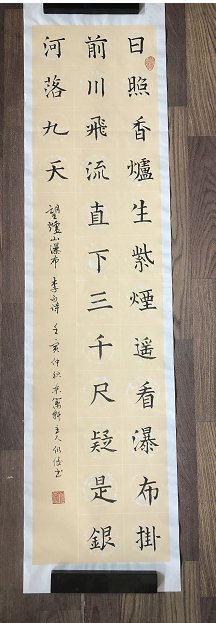 日照香爐生紫煙遥看瀑布掛
前川飛流直下三千尺疑是銀
河落九天
望爐山瀑布 李白诗 壬寅仲秋